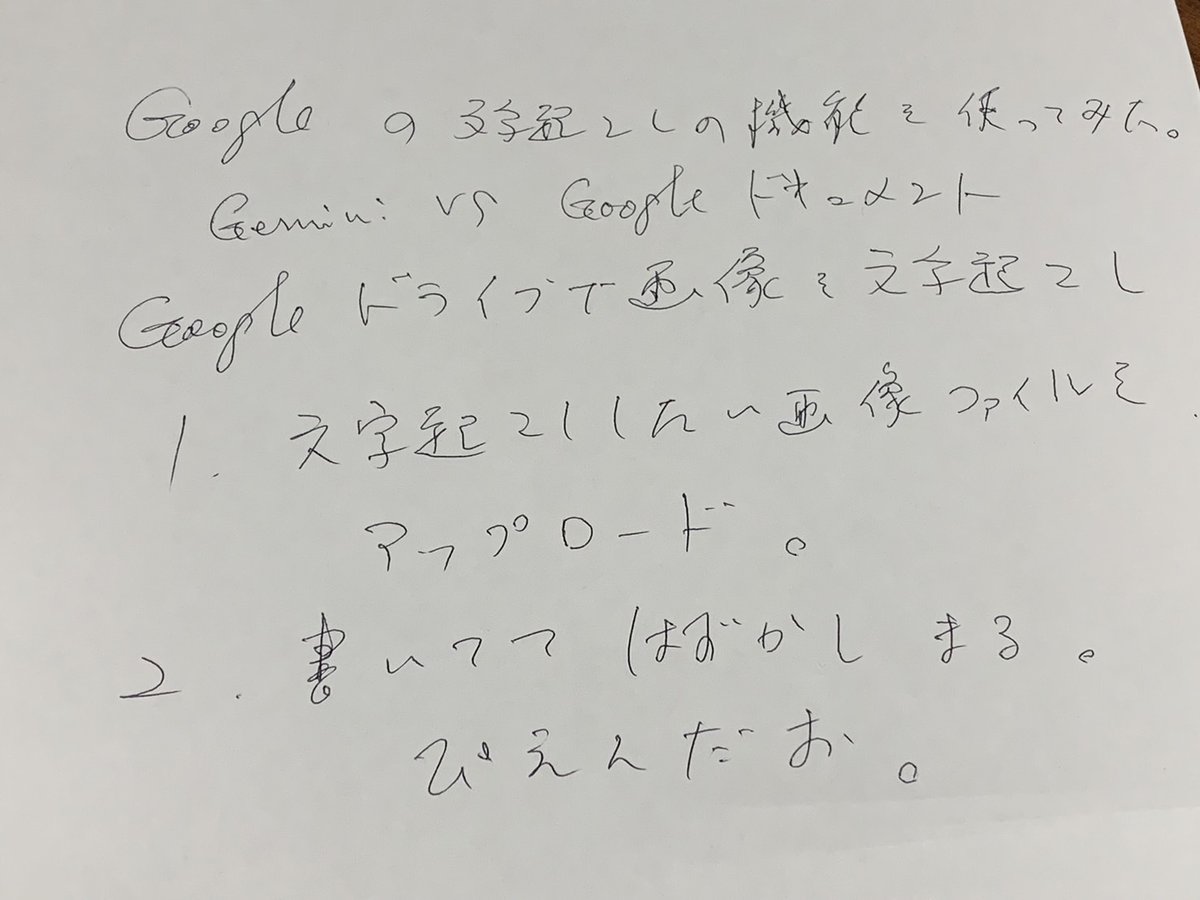 Googleの文字起こしの機能を使ってみた。
Gemini vs Googleドキュメント
Googleドライブで画像を文字起こし
1. 文字起こししたい画像ファイルを
アップロード。
2. 書いてて はずかしまる。
ぴえんだお。